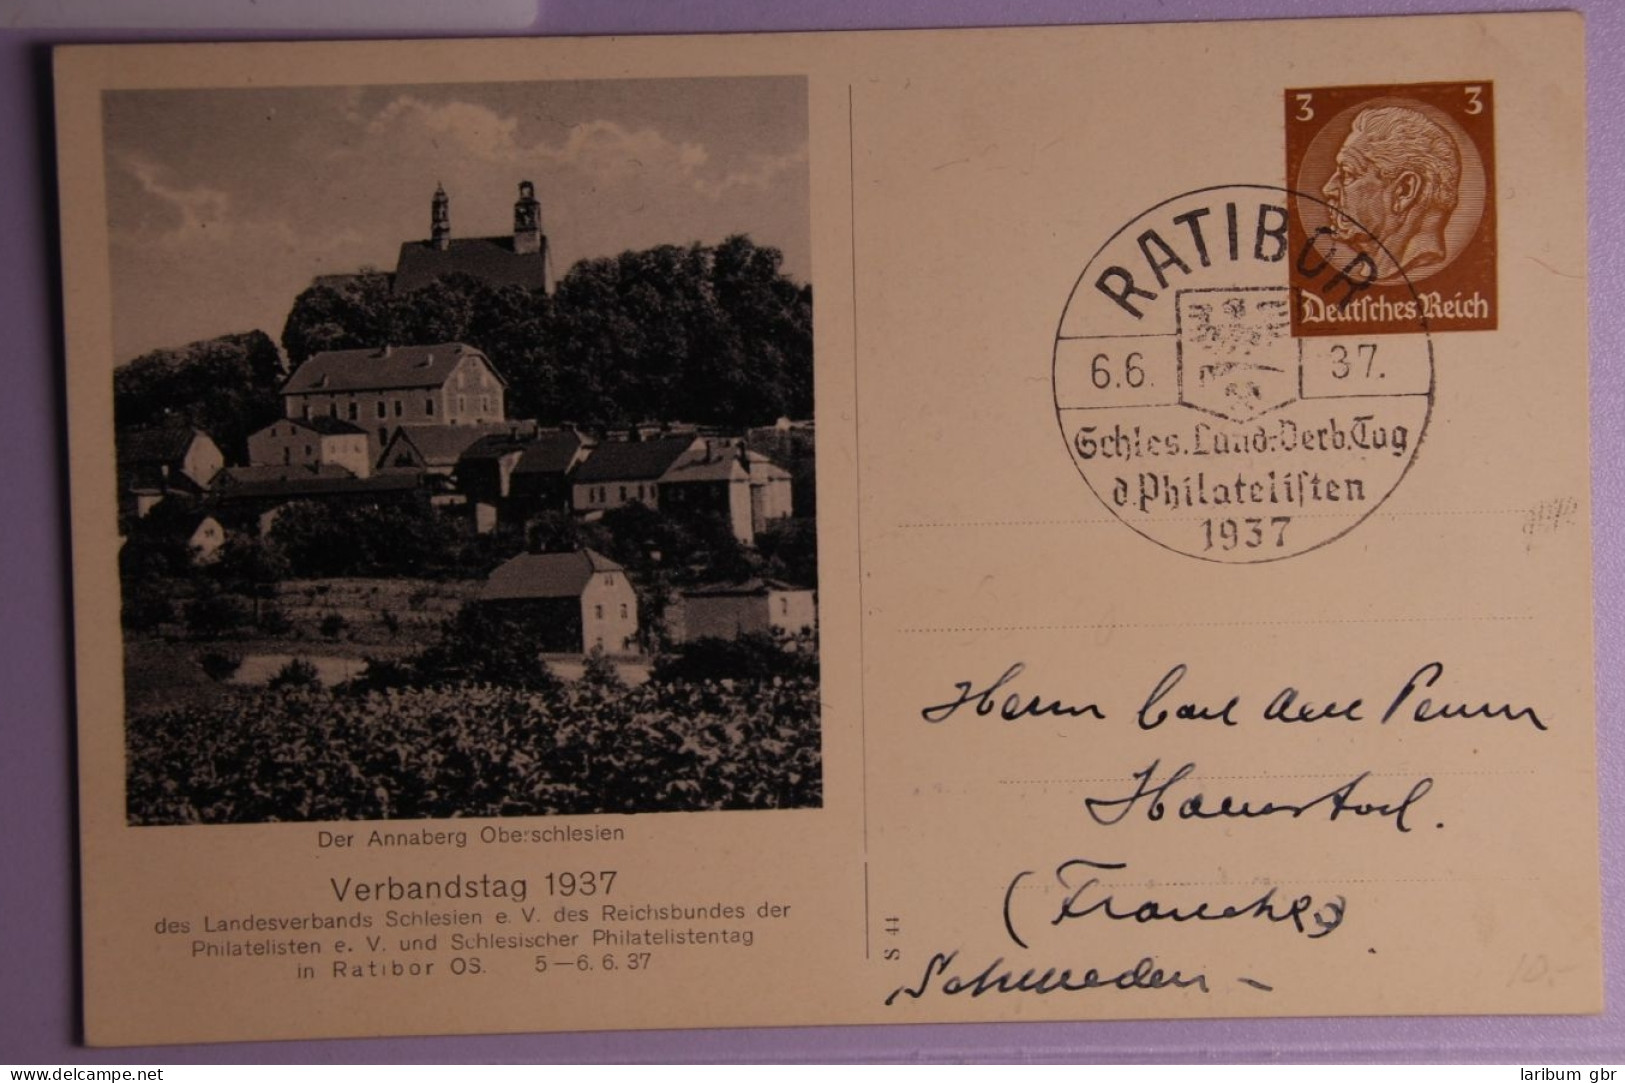 3 3
Deutsches Reich
RATIBOR
6.6. 37.
Schles. Land.-Verb. Tag
d. Philatelisten
1937
Der Annaberg Oberschlesien
Verbandstag 1937
des Landesverbands Schlesien e. V. des Reichsbundes der
Philatelisten e. V. und Schlesischer Philatelistentag
in Ratibor OS. 5—6. 6. 37
S 44
Herrn Carl
Schweden
10.-
www.delcampe.net
laribum gbr